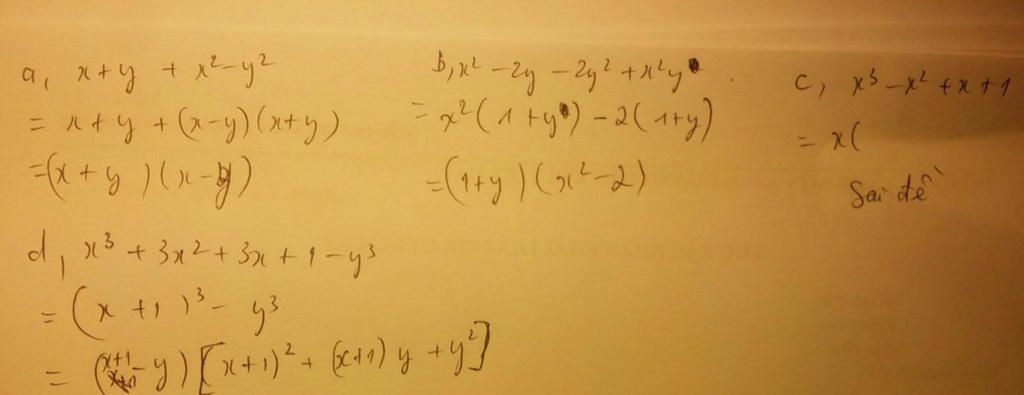 a, x+y + x²-y²
= x+y + (x-y)(x+y)
=(x+y)(x-y)
b, x² - 2y - 2y² + x²y
= x²(1+y) - 2(1+y)
=(1+y)(x²-2)
c, x³-x²+x+1
= x(
Sai đề
d, x³ + 3x² + 3x + 1 - y³
= (x+1)³ - y³
= (x+1-y)[x+1)² + (x+1)y + y²]